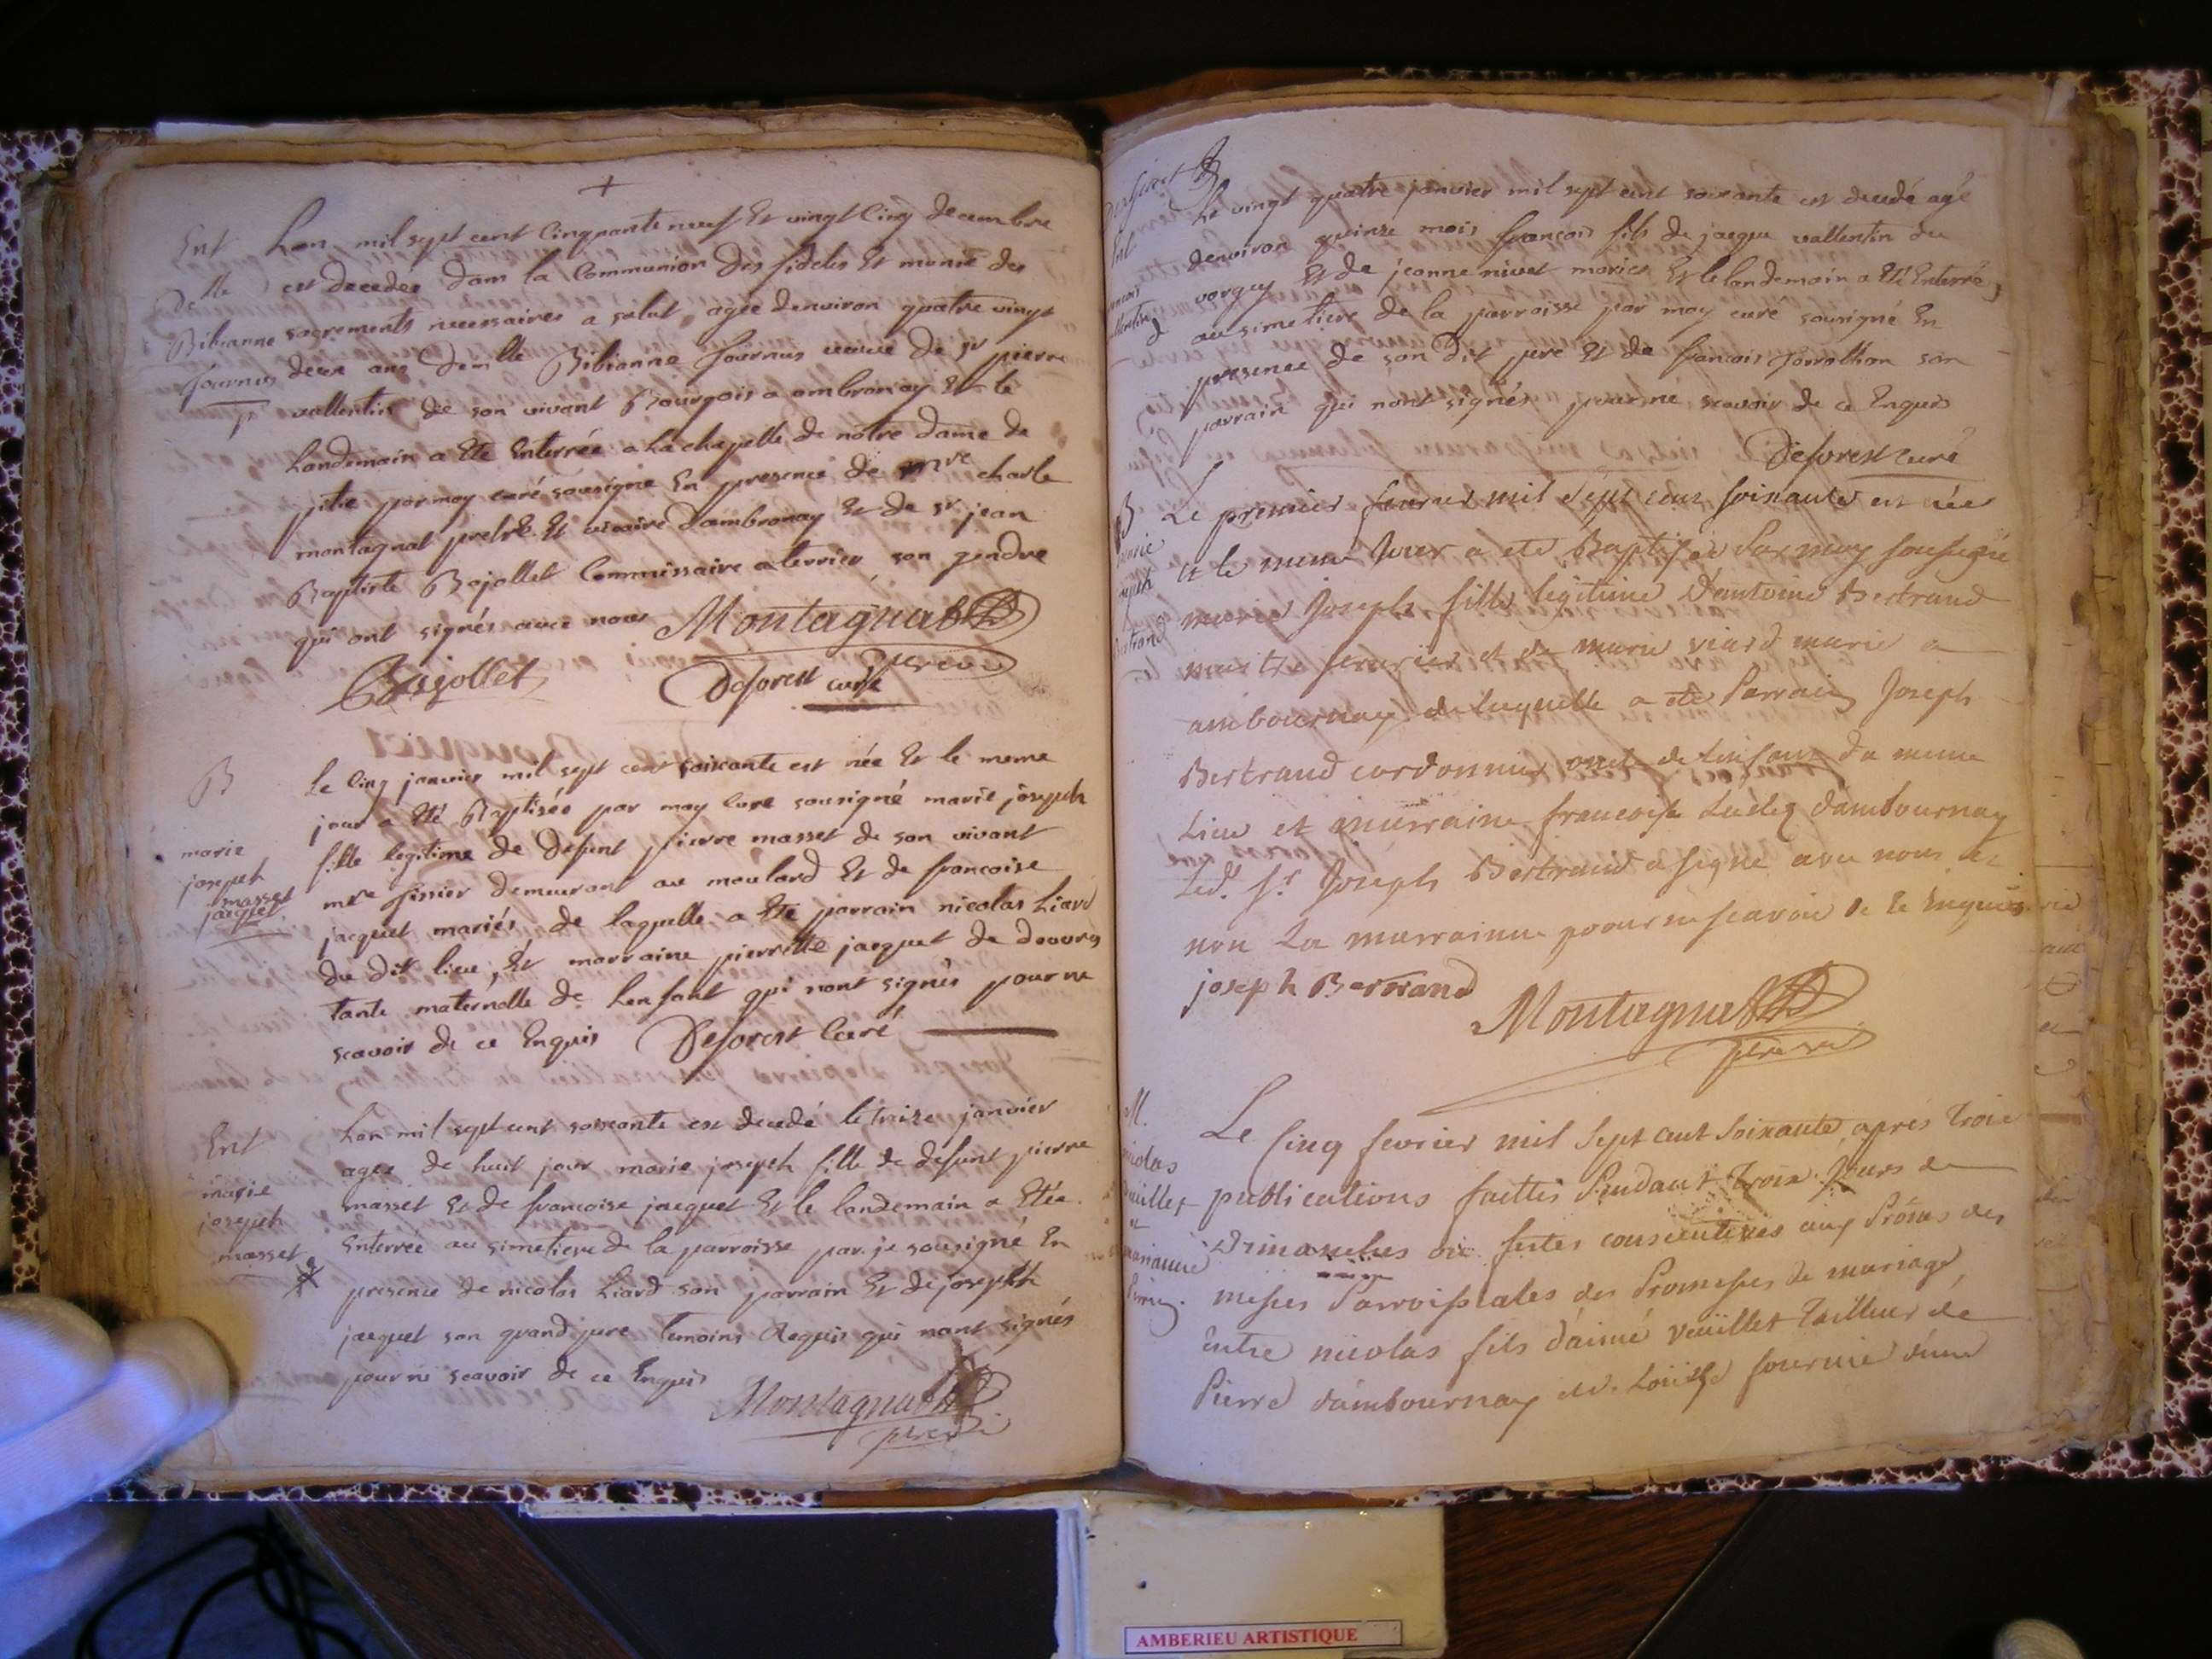 +
Ent
Delle
Bibianne
fournus
Lan mil sept cent Cinquante neuf Et vingt Cinq decembre
est decedée dans la Communion des fideles Et munie des
sacrements necessaires a salut, agée denviron quatre vingt
deux ans Demlle Bibianne fournus veuve de sr pierre
vallentin de son vivant Bourgois a ambronay Et le
Landemain a Eté Enterrée a La chapelle de notre dame de
pitie par moy curé sousigné En presence de mre charle
montagnat pretre Et vicaire dambronay Et de sr jean
Baptiste Bojollet Commissaire a terrier son gendre
qui ont signés avec nous Montagnat
Bojollet Deforest curé
B
marie
joseph
masset
jacquet
Le Cinq janvier mil sept cent soixante est née Et le meme
jour a Eté Baptisée par moy Curé sousigné marie joseph
fille legitime de defunt pierre masset de son vivant
mre tissier demeurant au moulard Et de francoise
jacquet mariés, de laquelle a Eté parrain nicolas Liard
du dit lieu, Et marraine pierrette jacquet de douvres
tante maternelle de Lenfant qui nont signés pour ne
scavoir de ce Enquis Deforest Curé
Ent
marie
joseph
masset
Lan mil sept cent soixante est decedé le treize janvier
agée de huit jour marie joseph fille de defunt pierre
masset Et de francoise jacquet Et le landemain a Etée
Enterrée au simetiere de la parroisse par je sousigné En
presence de nicolas Liard son parrain Et de joseph
jacquet son grand pere temoins Requis qui nont signés
pour ne scavoir de ce Enquis
Montagnat
Ent
Le vingt quatre janvier mil sept cent soixante est decedé agé
denviron quinze mois francois fils de jacque vallentin du
vorgey Et de jeanne nivet mariés Et le landemain a Eté Enterré
au simetiere de la parroisse par moy curé sousigné En
presence de son Dit pere Et de francois son
parrain qui nont signés pour ne scavoir de ce Enquis
Deforest curé
B
Le premier fevrier mil sept cent soixante est née
et le meme jour a eté Baptisée Par moy sousigné
marie Joseph fille legitime D'antoine Bertrand
maitre serrurier et de marie viard marié a
ambournay de laquelle a eté Parrain Joseph
Bertrand cordonnier oncle de Lenfant du meme
Lieu et marraine francoise dambournay
Led. sr Joseph Bertrand a signé avec nous et
non La marraine pour ne scavoir de Ce Enquis
joseph Bertrand
Montagnat
M.
Le Cinq fevrier mil Sept cent Soixante, après Trois
publications faittes Pendant Trois Jours de
Dimanches ou festes consecutives aux Prônes des
messes Parroissiales des Promesses de mariage,
entre nicolas fils d'aimé veüillet Tailleur de
Pierre d'ambournay et de Loüise fournié d'une
AMBERIEU ARTISTIQUE